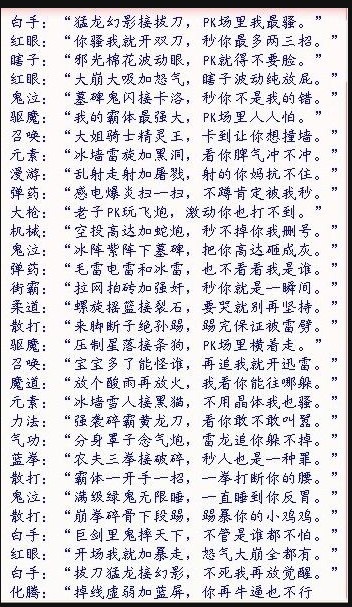 白手：“猛龙幻影接拔刀，PK场里我最骚。”
红眼：“你骚我就开双刀，秒你最多两三招。”
瞎子：“邪光棉花波动眼，PK就得不要脸。”
红眼：“大崩大吸加怒气，瞎子波动纯放屁。”
鬼泣：“墓碑鬼闪接卡洛，秒你不是我的错。”
驱魔：“我的霸体最强大，PK场里人人怕。”
召唤：“大姐骑士精灵王，卡到让你想撞墙。”
元素：“冰墙雷旋加黑洞，看你脾气冲不冲。”
漫游：“乱射走射加屠戮，射的你妈扛不住。”
弹药：“感电爆炎扫一扫，不蹲肯定被我秒。”
大枪：“老子PK玩飞炮，激动你也打不到。”
机械：“空投高达加蛇炮，秒不掉你我删号。”
鬼泣：“冰阵紫阵下墓碑，把你高达砸成灰。”
弹药：“毛雷电雷和冰雷，也不看看我是谁。”
街霸：“拉网拍砖加强奸，秒你就是一瞬间。”
柔道：“螺旋摇篮接裂石，要哭就别再坚持。”
散打：“朱脚断子绝孙踢，踢完保证被雷劈。”
驱魔：“压制星落接条狗，PK场里横着走。”
召唤：“宝宝多了能怪谁，再追我就开迅雷。”
魔道：“放个酸雨再放火，我看你能往哪躲。”
元素：“冰墙雪人接黑猫，不用晶体我也骚。”
力法：“强袭碎霸黄龙刀，看你敢不敢叫嚣。”
气功：“分身罩子念气炮，雷龙追你躲不掉。”
蓝拳：“农夫三拳接破碎，秒人也是一种罪。”
散打：“霸体一开手一招，一拳打断你的腰。”
鬼泣：“满级绿鬼无限睡，一直睡到你反胃。”
散打：“崩拳碎骨下段踢，踢暴你的小鸡鸡。”
白手：“巨剑里鬼摔天下，不管是谁都不怕。”
红眼：“开场我就加暴走，怒气大崩全都有。”
白手：“拔刀猛龙接幻影，不死我再放觉醒。”
化腾：“掉线虚弱加蓝屏，你再牛逼也不行